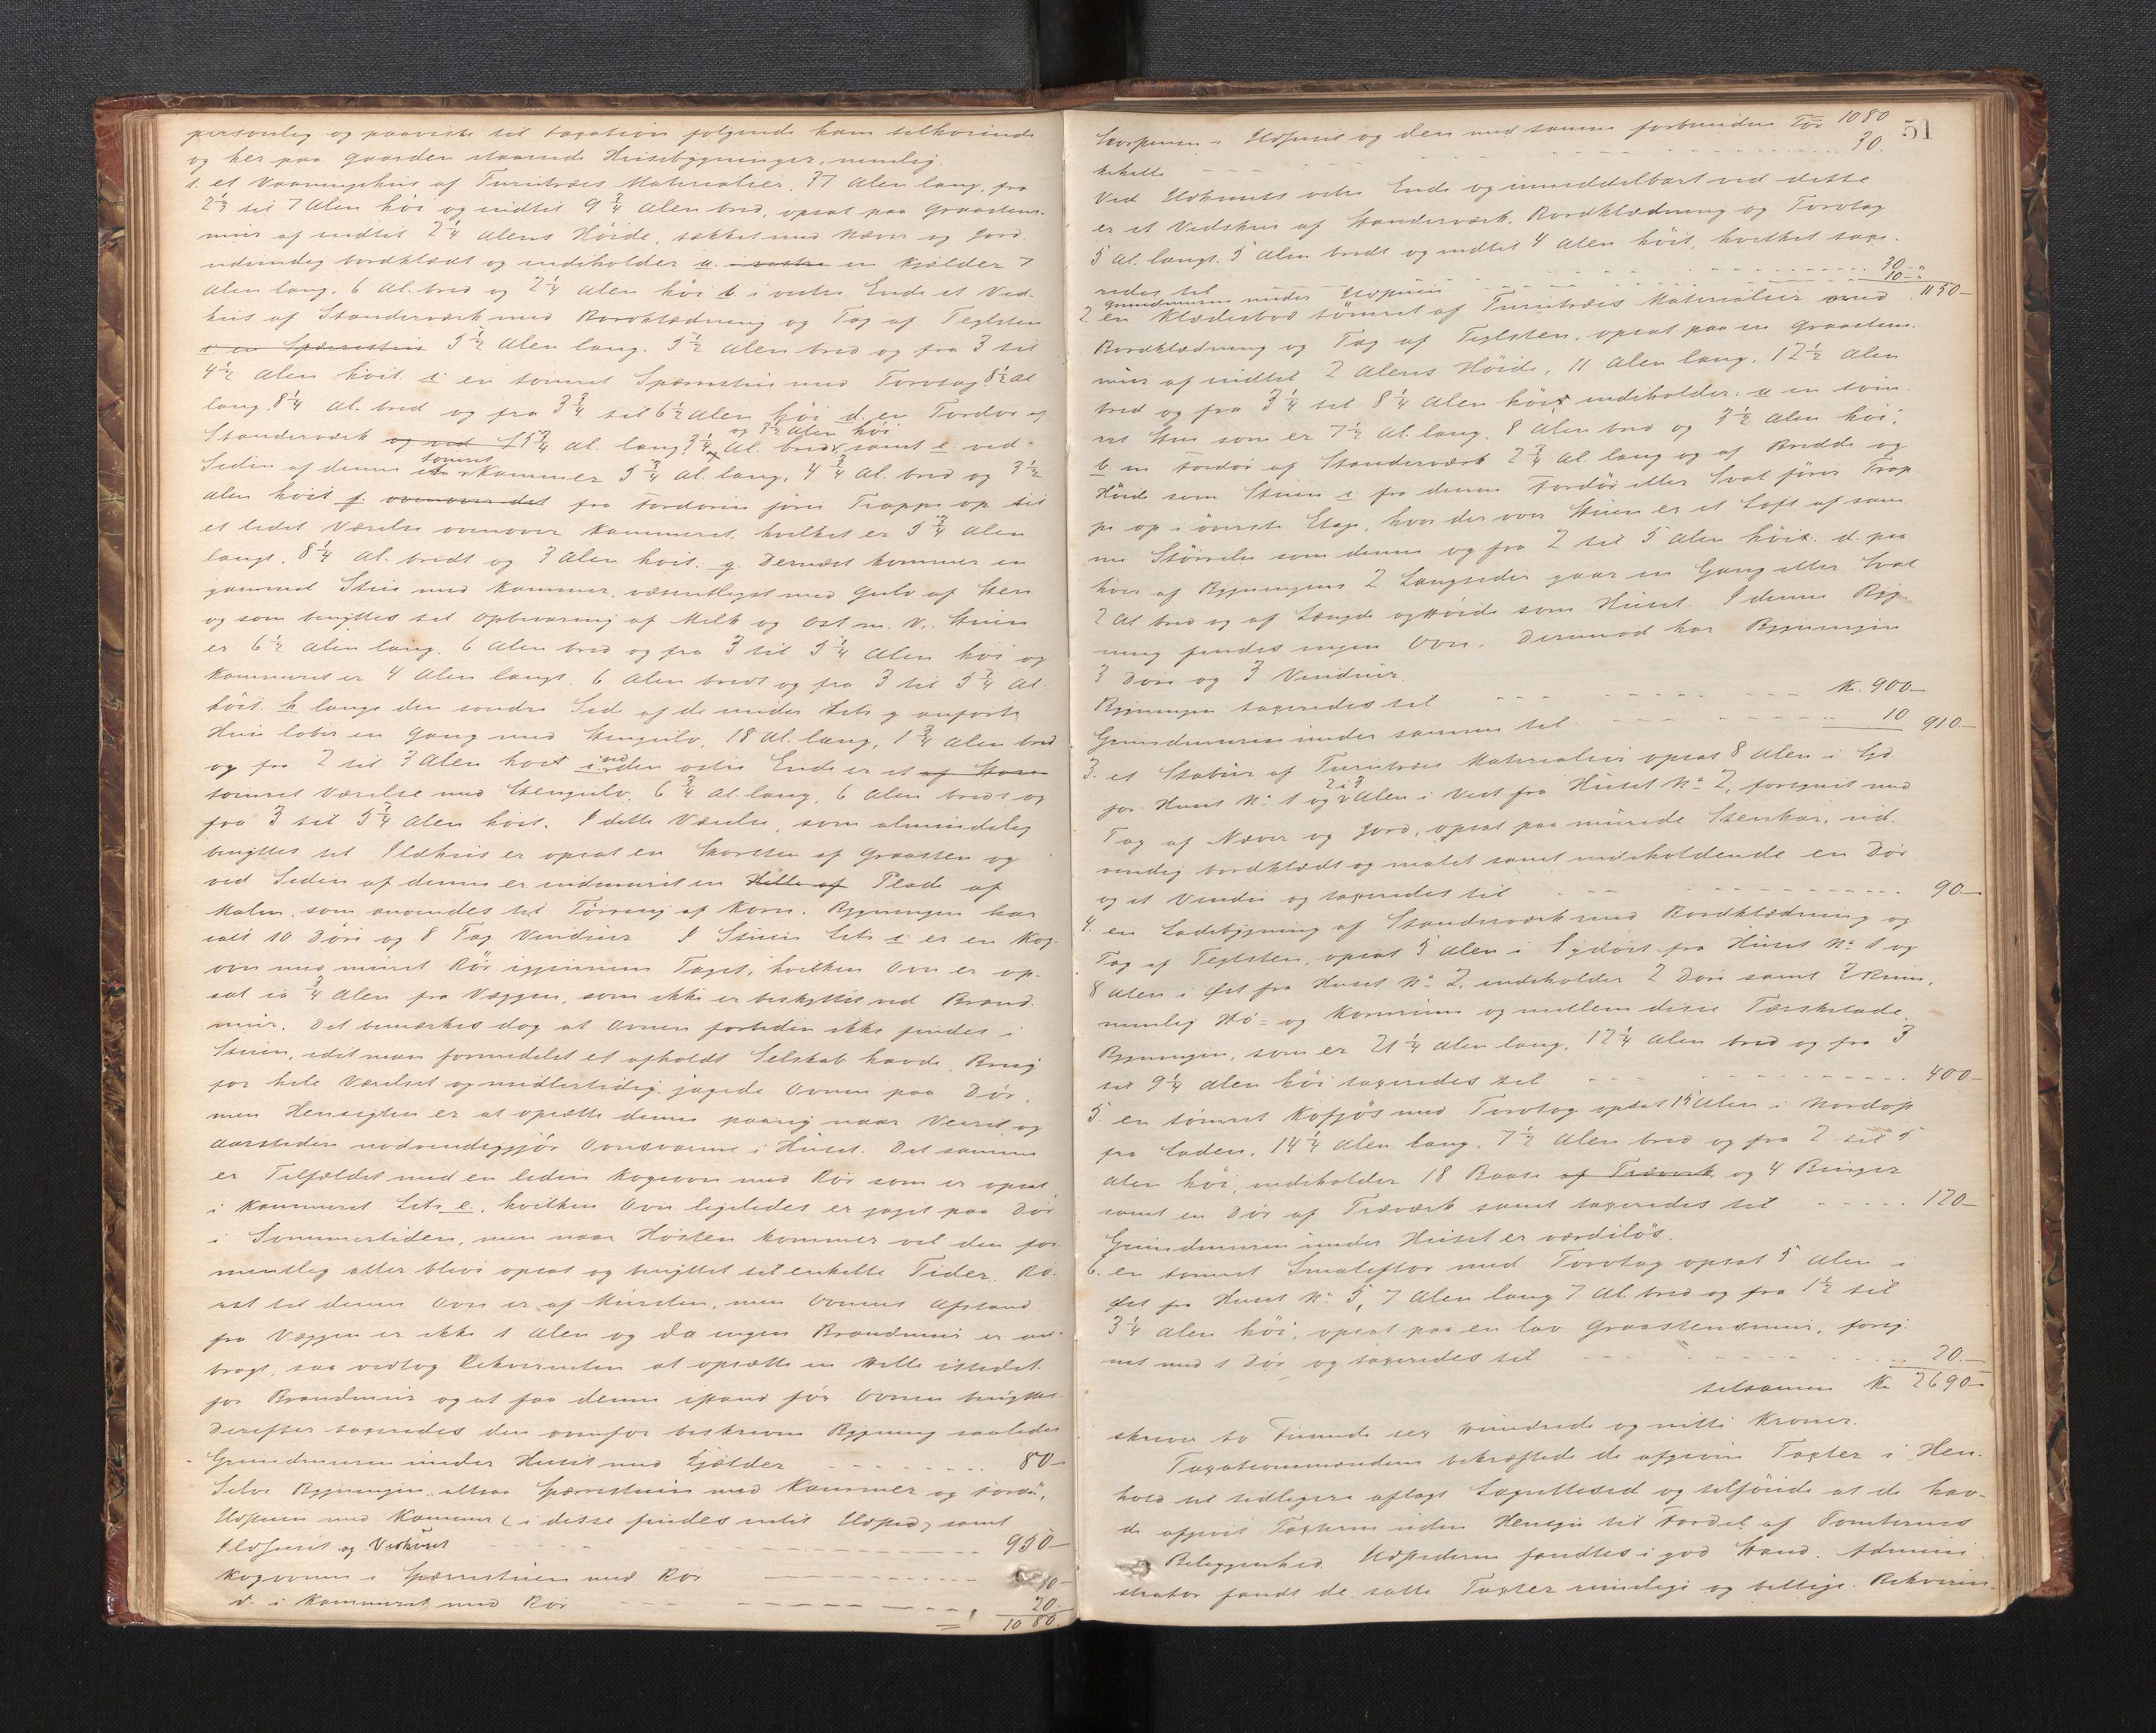 personlig og paaviste til taxation følgende ham tilhørende
og her paa gaarden staaende Huusebygninger, nemlig.
1. et Vaaningshus af Furutræes Materialier, 37 Alen lang, fra
2 1/2 til 7 Alen høi og indtil 9 3/4 Alen bred, opsat paa Graasteens-
muur af indtil 2 1/4 Alens Høide, tækket med Næver og Jord.
udvendig bordklædt og indeholder a. en Kjælder 7
Alen lang, 6 Al. bred og 2 1/4 Alen høi b i vestre Ende et Ved-
huus af Standerværk med Bordklædning og Tag af Teglsten
5 1/2 Alen lang. 5 1/2 Alen bred og fra 3 til
4 1/2 Alen høit. c en tømret Spærrestue med Torvtag 8 1/2 Al
lang. 8 1/4 Al. bred og fra 3 3/4 til 6 1/2 Alen høi d. en Fordør af
Standerværk 5 3/4 Al. lang, 3 1/4 Al. bred og 3 1/2 Alen høi samt e. ved
Siden af denne tømret Kammer 5 3/4 Al. lang, 4 3/4 Al. bred og 3 1/2
Alen høit f. fra Fordøren fører Trappe op til
et lidet Værelse ovenover Kammeret, hvilket er 5 3/4 Alen
langt, 8 1/4 Al. bredt og 3 Alen høit. g. Dernæst kommer en
gammel Stue med Kammer, væsentligst med Gulv af Sten
og som benyttes til Opbevaring af Melk og Ost m. v. Stuen
er 6 1/2 Alen lang, 6 Alen bred og fra 3 til 5 1/4 Alen høi og
Kammeret er 4 Alen langt, 6 Alen bredt og fra 3 til 5 1/4 Al.
høit. h langs den søndre Side af de under Litr g anførte
Huse løber en Gang med Stengulv, 18 Al. lang, 1 3/4 Alen bred
og fra 2 til 3 Alen høi i. ved den østre Ende er et
tømret Værelse med Stengulv, 6 3/4 Al. lang, 6 Alen bredt og
fra 3 til 5 1/4 Alen høit. I dette Værelse, som almindelig
benyttes til Ildhus er opsat en Skorsten af Graasten og
ved Siden af denne er indmuret en Plade af
Malm, som anvendes til Tørring af Korn. Bygningen har
ialt 10 Døre og 8 Fag Vinduer I Stuen Litr c er en Kog-
ovn med muret Rør igjennem Taget, hvilken Ovn er op-
sat ca 3/4 Alen fra Væggen, som ikke er beskyttet ved Brand-
muur. Det bemærkes dog at Ovnen fortiden ikke findes i
Stuen, idet man formedelst et afholdt Selskab havde Brug
for hele Værelset og midlertidig jagede Ovnen paa Dør,
men Hensigten er at opsætte denne paany naar Veiret og
Aarstiden nødvendiggjør Ovnsvarme i Huset. Det samme
er Tilfældet med en liden Kogeovn med Rør som er opsat
i Kammeret Litr e., hvilken Ovn ligeledes er jaget paa Dør
i Sommertiden, men naar Høsten kommer vil den for-
mentlig atter blive opsat og benyttet til enkelte Tider. Rø-
ret til denne Ovn er af Mursten, men Ovnens Afstand
fra Væggen er ikke 1 Alen og da ingen Brandmuur er an-
bragt, saa vedtog Rekvirenten at opsætte en Helle istedet-
for Brandmuur og at faa denne istand før Ovnen benyttes.
Derefter taxeredes den ovenfor beskrevne Bygning saaledes
Grundmuren under Huset med Kjælder 80-
Selve Bygningen, altsaa Spærrestuen med Kammer og Fordør,
Ildstuen med Kammer (i disse findes intet Ildsted) samt
Ildhuset og Vedhuset 950-
Kogeovnen i Spærrestuen med Rør
d. i Kammeret med Rør 20.
1080
51
Skorstenen i Ildhuset og den med samme forbundne Tør- 1080
kehelle 30.
Ved Ildhusets vestre Ende og umiddelbart ved dette
er et Vedskur af Standerværk, Bordklædning og Torvtag
5 Al. langt. 5 Alen bredt og indtil 4 Alen høit, hvilket taxe-
redes til 30-"
Grundmuren under 10-" 1150-
2. en Klædesbod tømret af Furutræes Materialier med
Bordklædning og Tag af Teglsten, opsat paa en Graastens-
muur af indtil 2 Alens Høide, 11 Alen lang, 12 1/2 Alen
bred og fra 3 1/4 til 8 1/4 Alen høi, indeholder: a en tøm-
ret Stue som er 7 1/2 Al. lang, 8 Alen bred og 3 1/2 Alen høi,
b. en Fordør af Standerværk 2 3/4 Al. lang og af Bredde og
Høide som Stuen c: fra denne Fordør eller Sval fører Trap-
pe op i øverste Etage, hvor der over Stuen er et Loft af sam-
me Størrelse som denne og fra 2 til 5 Alen høit. d. paa
hver af Bygningens 2 Langsider gaar en Gang eller Sval
2 Al bred og af Længde og Høide som Huset. I denne Byg-
ning findes ingen Ovn. Derimod har Bygningen
3 Døre og 3 Vinduer.
Bygningen taxeredes til Kr. 900-
Grundmuren under samme til 10 910-
3. et Stabur af Furutræes Materialier opsat 8 Alen i Syd
for Huset No 1 og 2 à 3 Alen i Vest fra Huset No 2, forsynet med
Tag af Næver og Jord, opsat paa murede Stenkar, ud-
vendig bordklædt og malet samt indeholdende en Dør
og et Vindue og taxeredes til 90-
4. en Ladebygning af Standerværk med Bordklædning og
Tag af Teglsten, opsat 5 Alen i Sydøst fra Huset No 1 og
8 Alen i Øst fra Huset No 2, indeholder 2 Døre samt 3 Rum,
nemlig Hø- og Kornrum og mellem disse Tærskelade.
Bygningen, som er 21 1/4 Alen lang, 12 1/4 Alen bred og fra 3
til 9 1/4 Alen høi taxeredes til 400-
5. en tømret Kofjøs med Torvtag opsat 15 Alen i Nordøst
fra Laden, 14 1/4 Alen lang, 7 1/2 Alen bred og fra 2 til 5
Alen høi, indeholder 18 Baase af Træverk og 4 Binger
samt en Dør af Træværk samt taxeredes til 120-
Grundmuren under Huset er værdiløs.
6. en tømret Smalefjøs med Torvtag opsat 5 Alen i
Øst fra Huset No 5, 7 Alen lang 7 Al. bred og fra 1 1/2 til
3 1/4 Alen høi, opsat paa en lav Graastensmuur, forsy-
net med 1 Dør og taxeredes til 20.-
tilsammen Kr 2690-
skriver to Tusinde sex Hundrede og nitti Kroner.
Taxationsmændene bekræftede de afgivne Taxter i Hen-
hold til tidligere aflagt Lagrettesed og tilføiede at de hav-
de afgivet Taxterne uden Hensyn til Fordel af Tomternes
Beliggenhed. Ildstederne fandtes i god Stand. Admini-
strator fandt de satte Taxter rimelige og billige. Rekviren-